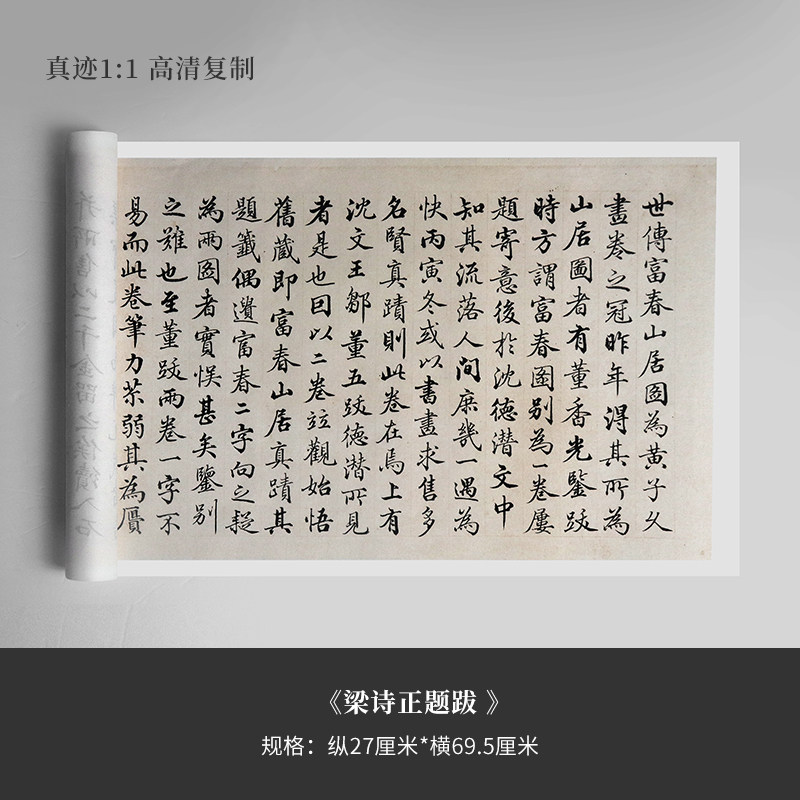 真迹1:1 高清复制
世傳富春山居圖為黃子久
畫卷之冠昨年得其所為
山居圖者有董香光鑒跋
時方謂富春圖别為一卷屢
題寄意後於沈德潛文中
知其流落人間庶幾一遇為
快丙寅冬或以書畫求售多
名賢真蹟則此卷在焉上有
沈文王鄒董五跋德潛所見
者是也因以二卷竝觀始悟
舊蔵即富春山居真蹟其
題籤偶遺富春二字向之疑
為兩圖者實悞甚矣鑒别
之難也至董跋兩卷一字不
易而此卷筆力苶弱其為贋
《梁诗正题跋 》
规格：纵27厘米*横69.5厘米